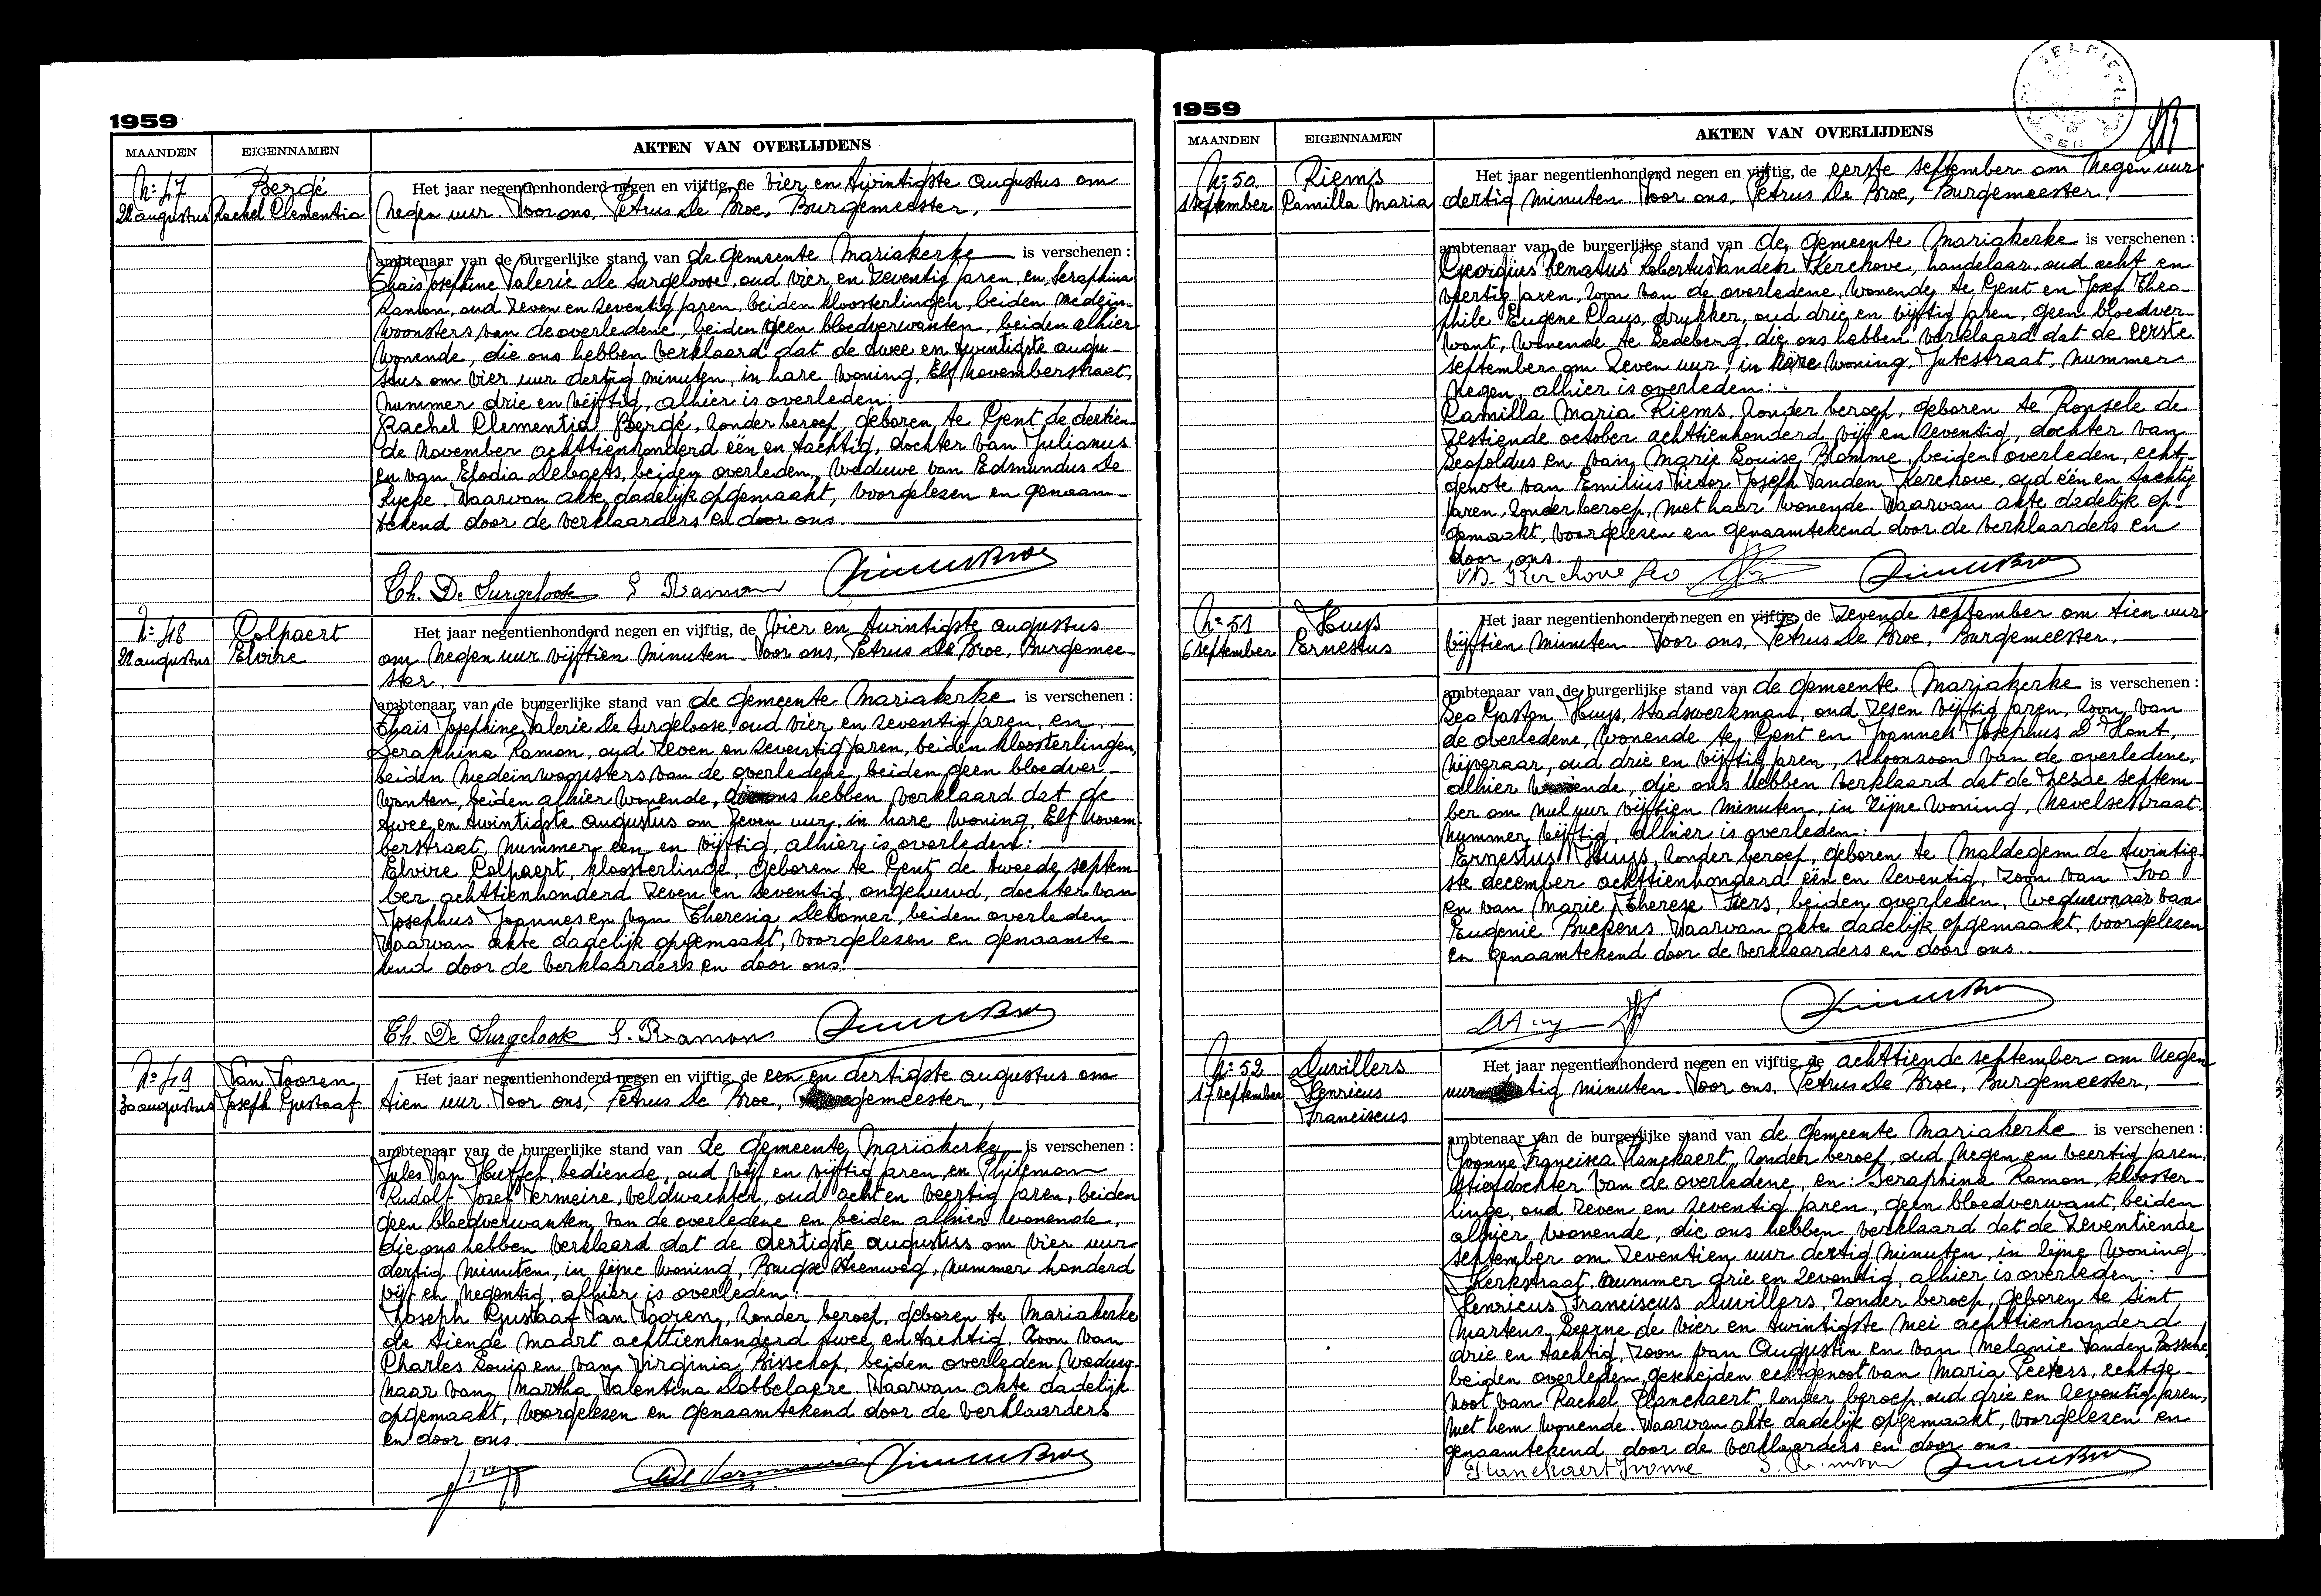 1959
MAANDEN EIGENNAMEN AKTEN VAN OVERLIJDENS
N: 47
22 augustus
Bergé
Rachel Clementia
Het jaar negentienhonderd negen en vijftig, de vier en twintigste augustus om
negen uur. Voor ons, Petrus De Broe, Burgemeester,
ambtenaar van de burgerlijke stand van de gemeente Mariakerke is verschenen :
Thaïs Josephine Valerie De Surgeloose, oud vier en zeventig jaren, en, Seraphina
Ramon, oud zeven en zeventig jaren, beiden kloosterlingen, beiden medein-
woonsters van de overledene, beiden geen bloedverwanten, beiden alhier
wonende, die ons hebben verklaard dat de twee en twintigste augu-
stus om vier uur dertig minuten, in hare woning, Elf novemberstraat,
nummer drie en vijftig, alhier is overleden:
Rachel Clementia Bergé, zonder beroep, geboren te Gent de dertien-
de november achttienhonderd één en tachtig, dochter van Julianus
en van Elodia Debaets, beiden overleden, weduwe van Edmundus De
Rycke. Waarvan akte dadelijk opgemaakt, voorgelezen en genaam-
tekend door de verklaarders en door ons.
Th. De Surgeloose S Ramon
N: 48
22 augustus
Colpaert
Elvire
Het jaar negentienhonderd negen en vijftig, de vier en twintigste augustus
om negen uur vijftien minuten. Voor ons, Petrus De Broe, Burgemee-
ster,
ambtenaar van de burgerlijke stand van de gemeente Mariakerke is verschenen :
Thaïs Josephine Valerie De Surgeloose, oud vier en zeventig jaren, en,
Seraphina Ramon, oud zeven en zeventig jaren, beiden kloosterlingen,
beiden medeïnwoonsters van de overledene, beiden geen bloedver-
wanten, beiden alhier wonende, die ons hebben verklaard dat de
twee en twintigste augustus om zeven uur, in hare woning, Elf novem-
berstraat, nummer een en vijftig, alhier is overleden:
Elvire Colpaert, kloosterlinge, geboren te Gent de tweede septem-
ber achttienhonderd zeven en zeventig, ongehuwd, dochter van
Josephus Joannes en van Theresia Dedomer, beiden overleden.
Waarvan akte dadelijk opgemaakt, voorgelezen en genaamte-
kend door de verklaarders en door ons.
Th. De Surgeloose S. Ramon
N: 49
30 augustus
Van Vooren
Joseph Gustaaf
Het jaar negentienhonderd negen en vijftig, de een en dertigste augustus om
tien uur. Voor ons, Petrus De Broe, Burgemeester,
ambtenaar van de burgerlijke stand van de gemeente Mariakerke is verschenen :
Jules Van Huffel, bediende, oud vijf en vijftig jaren, en Philemon
Rudolf Jozef Vermeire, veldwachter, oud acht en veertig jaren, beiden
geen bloedverwanten van de overledene en beiden alhier wonende,
die ons hebben verklaard dat de dertigste augustus om vier uur
dertig minuten, in zijne woning, Brugse Steenweg, nummer honderd
vijf en negentig, alhier is overleden:
Joseph Gustaaf Van Vooren, zonder beroep, geboren te Mariakerke
de tiende maart achttienhonderd twee en tachtig, zoon van
Charles Louis en van Virginia Bisschop, beiden overleden, weduw-
naar van Martha Valentina Dobbelaere. Waarvan akte dadelijk
opgemaakt, voorgelezen en genaamtekend door de verklaarders
en door ons.
1959
MAANDEN EIGENNAMEN AKTEN VAN OVERLIJDENS
N: 50
1 september
Riems
Camilla Maria
Het jaar negentienhonderd negen en vijftig, de eerste september om negen uur
dertig minuten. Voor ons, Petrus De Broe, Burgemeester,
ambtenaar van de burgerlijke stand van de gemeente Mariakerke is verschenen :
Georgius Renatus Robertus Vanden Kerchove, handelaar, oud acht en
veertig jaren, zoon van de overledene, wonende te Gent en Jozef Theo-
phile Eugene Claus, drukker, oud drie en vijftig jaren, geen bloedver-
want, wonende te Ledeberg, die ons hebben verklaard dat de eerste
september om zeven uur, in hare woning, Jutestraat, nummer
negen, alhier is overleden:
Camilla Maria Riems, zonder beroep, geboren te Ronsele de
zestiende october achttienhonderd vijf en zeventig, dochter van
Leopoldus en van Marie Louise Blomme, beiden overleden, echt-
genote van Emilius Victor Joseph Vanden Kerchove, oud één en tachtig
jaren, zonder beroep, met haar wonende. Waarvan akte dadelijk op-
gemaakt, voorgelezen en genaamtekend door de verklaarders en
door ons.
VD. Kerchove Geo
N: 51
6 september
Huys
Ernestus
Het jaar negentienhonderd negen en vijftig, de zevende september om tien uur
vijftien minuten. Voor ons, Petrus De Broe, Burgemeester,
ambtenaar van de burgerlijke stand van de gemeente Mariakerke is verschenen :
Leo Gaston Huys, stadswerkman, oud zesen vijftig jaren, zoon van
de overledene, wonende te Gent en Joannes Josephus D'Hont,
nijveraar, oud drie en vijftig jaren, schoonzoon van de overledene,
alhier wonende, die ons hebben verklaard dat de zesde septem-
ber om nul uur vijftien minuten, in zijne woning, Nevelsestraat,
nummer vijftig, alhier is overleden:
Ernestus Huys, zonder beroep, geboren te Maldegem de twintig-
ste december achttienhonderd één en zeventig, zoon van Ivo
en van Marie Therese Fiers, beiden overleden, weduwnaar van
Eugenie Buekens. Waarvan akte dadelijk opgemaakt, voorgelezen
en genaamtekend door de verklaarders en door ons.
N: 52
17 september
Duvillers
Henricus
Franciscus
Het jaar negentienhonderd negen en vijftig, de achttiende september om negen
uur dertig minuten. Voor ons, Petrus De Broe, Burgemeester,
ambtenaar van de burgerlijke stand van de gemeente Mariakerke is verschenen :
Yvonne Francisca Planckaert, zonder beroep, oud negen en veertig jaren,
stiefdochter van de overledene, en: Seraphina Ramon, klooster-
linge, oud zeven en zeventig jaren, geen bloedverwant, beiden
alhier wonende, die ons hebben verklaard dat de zeventiende
september om zeventien uur dertig minuten, in zijne woning
Kerkstraat, nummer drie en zeventig, alhier is overleden:
Henricus Franciscus Duvillers, zonder beroep, geboren te Sint
Martens Leerne de vier en twintigste mei achttienhonderd
drie en tachtig, zoon van Augustin en van Melanie Vanden Bossche,
beiden overleden, gescheiden echtgenoot van Maria Peeters, echtge-
noot van Rachel Planckaert, zonder beroep, oud drie en zeventig jaren,
met hem wonende. Waarvan akte dadelijk opgemaakt, voorgelezen en
genaamtekend door de verklaarders en door ons.
Planckaert Yvonne S. Ramon